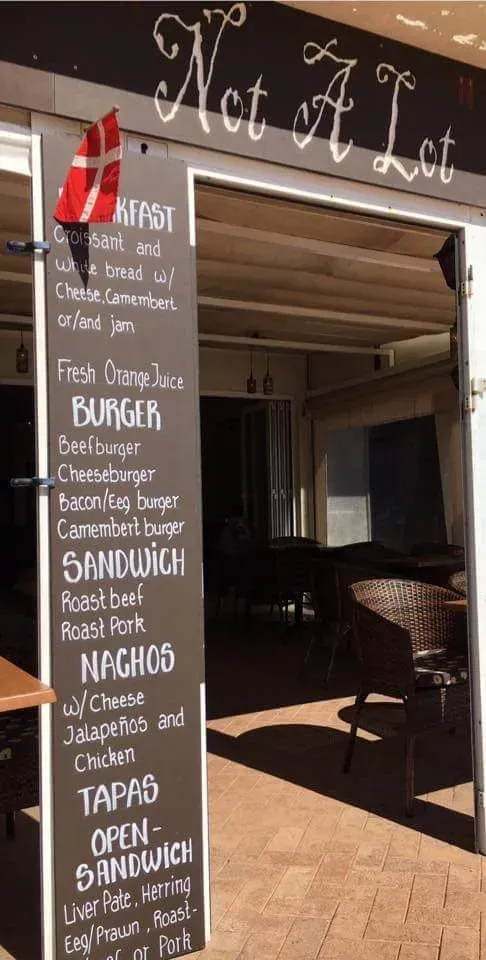 Not A Lot
KFAST
Croissant and
White bread w/
Cheese, Camembert
or/and jam
Fresh Orange Juice
BURGER
Beefburger
Cheeseburger
Bacon/Eeg burger
Camembert burger
SANDWiCH
Roastbeef
Roast Pork
NACHOS
w/Cheese
Jalapeños and
Chicken
TAPAS
OPEN-
SANDWiCH
Liver Pate, Herring
Eeg/Prawn, Roast-
or Pork